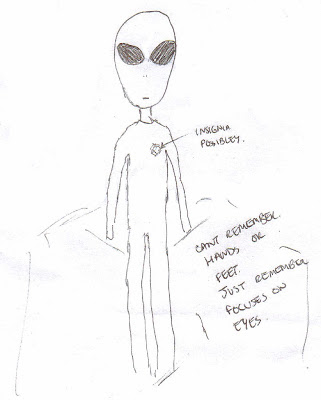 INSIGNIA
POSSIBLEY.
CANT REMEMBER.
HANDS OR
FEET.
JUST REMEMBER
FOCUSES ON
EYES.